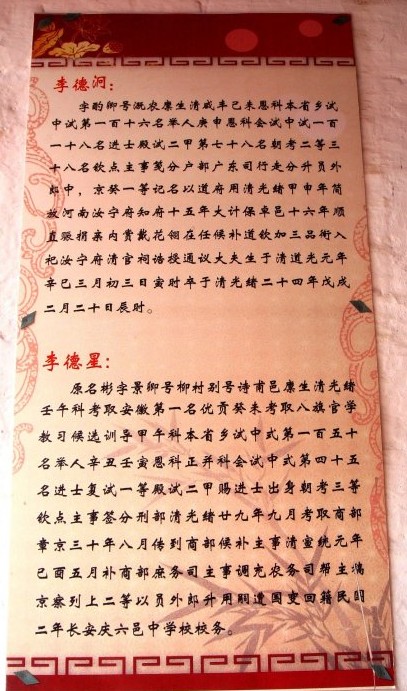 李德泂：
字酌卿号溉农廪生清咸丰己未恩科本省乡试
中试第一百十六名举人庚申恩科会试中试一百
一十八名进士殿试二甲第七十八名朝考二等三
十八名钦点主事笺分户部广东司行走分升员外
郎中，京癸一等记名以道府用清光緒甲申年简
放河南汝宁府知府十五年大计保卓邑十六年顺
直赈捐案内赏戴花翎在任候补道钦加三品衔入
祀汝宁府清官祠诰授通议大夫生于清道光元年
辛巳三月初三日寅时卒于清光緒二十四年戊戌
二月二十日辰时。
李德星：
原名彬字景卿号柳村别号诗甫邑廪生清光緒
壬午科考取安徽第一名优贡癸未考取八旗官学
教习候选训导甲午科本省乡试中式第一百五十
名举人辛丑壬寅恩科正并科会试中式第四十五
名进士复试一等殿试二甲赐进士出身朝考三等
钦点主事签分刑部清光緒廿九年九月考取商部
章京三十年八月传到商部候补主事清宣统元年
己酉五月补商部庶务司主事调充农务司帮主稿
京察列上二等以员外郎升用嗣遭国变回籍民国
二年长安庆六邑中学校校务。